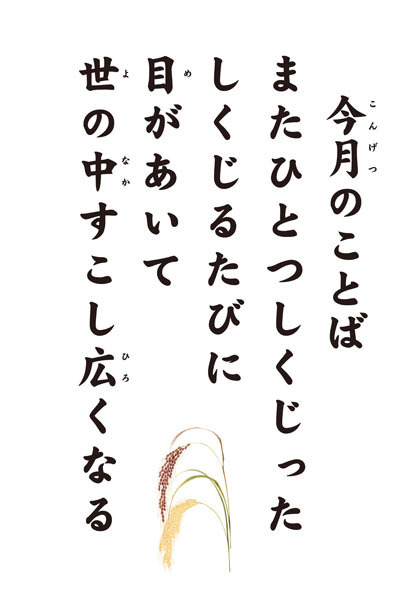 今月のことば
またひとつしくじった
しくじるたびに
目があいて
世の中すこし広くなる
こんげつ
め
よ
なか
ひろ